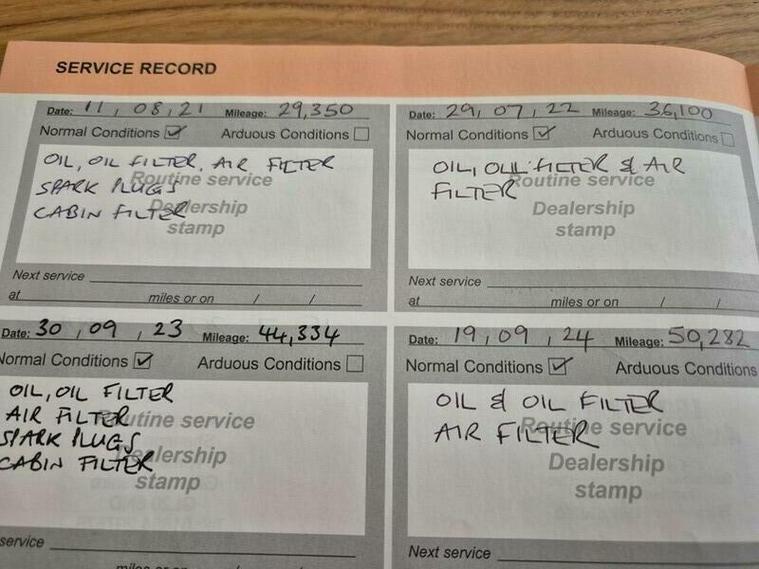 SERVICE RECORD
Date: 11 / 08 / 21 Mileage: 29,350
Normal Conditions ☑ Arduous Conditions ☐
OIL, OIL FILTER, AIR FILTER
SPARK PLUGS
CABIN FILTER
Routine service
Dealership
stamp
Next service
at miles or on / /
Date: 29 / 07 / 22 Mileage: 36,100
Normal Conditions ☑ Arduous Conditions ☐
OIL, OIL FILTER & AIR
FILTER
Routine service
Dealership
stamp
Next service
at miles or on / /
Date: 30 / 09 / 23 Mileage: 44,334
Normal Conditions ☑ Arduous Conditions ☐
OIL, OIL FILTER
AIR FILTER
SPARK PLUGS
CABIN FILTER
Routine service
Dealership
stamp
service
miles or on
Date: 19 / 09 / 24 Mileage: 50,282
Normal Conditions ☑ Arduous Conditions
OIL & OIL FILTER
AIR FILTER
Routine service
Dealership
stamp
Next service